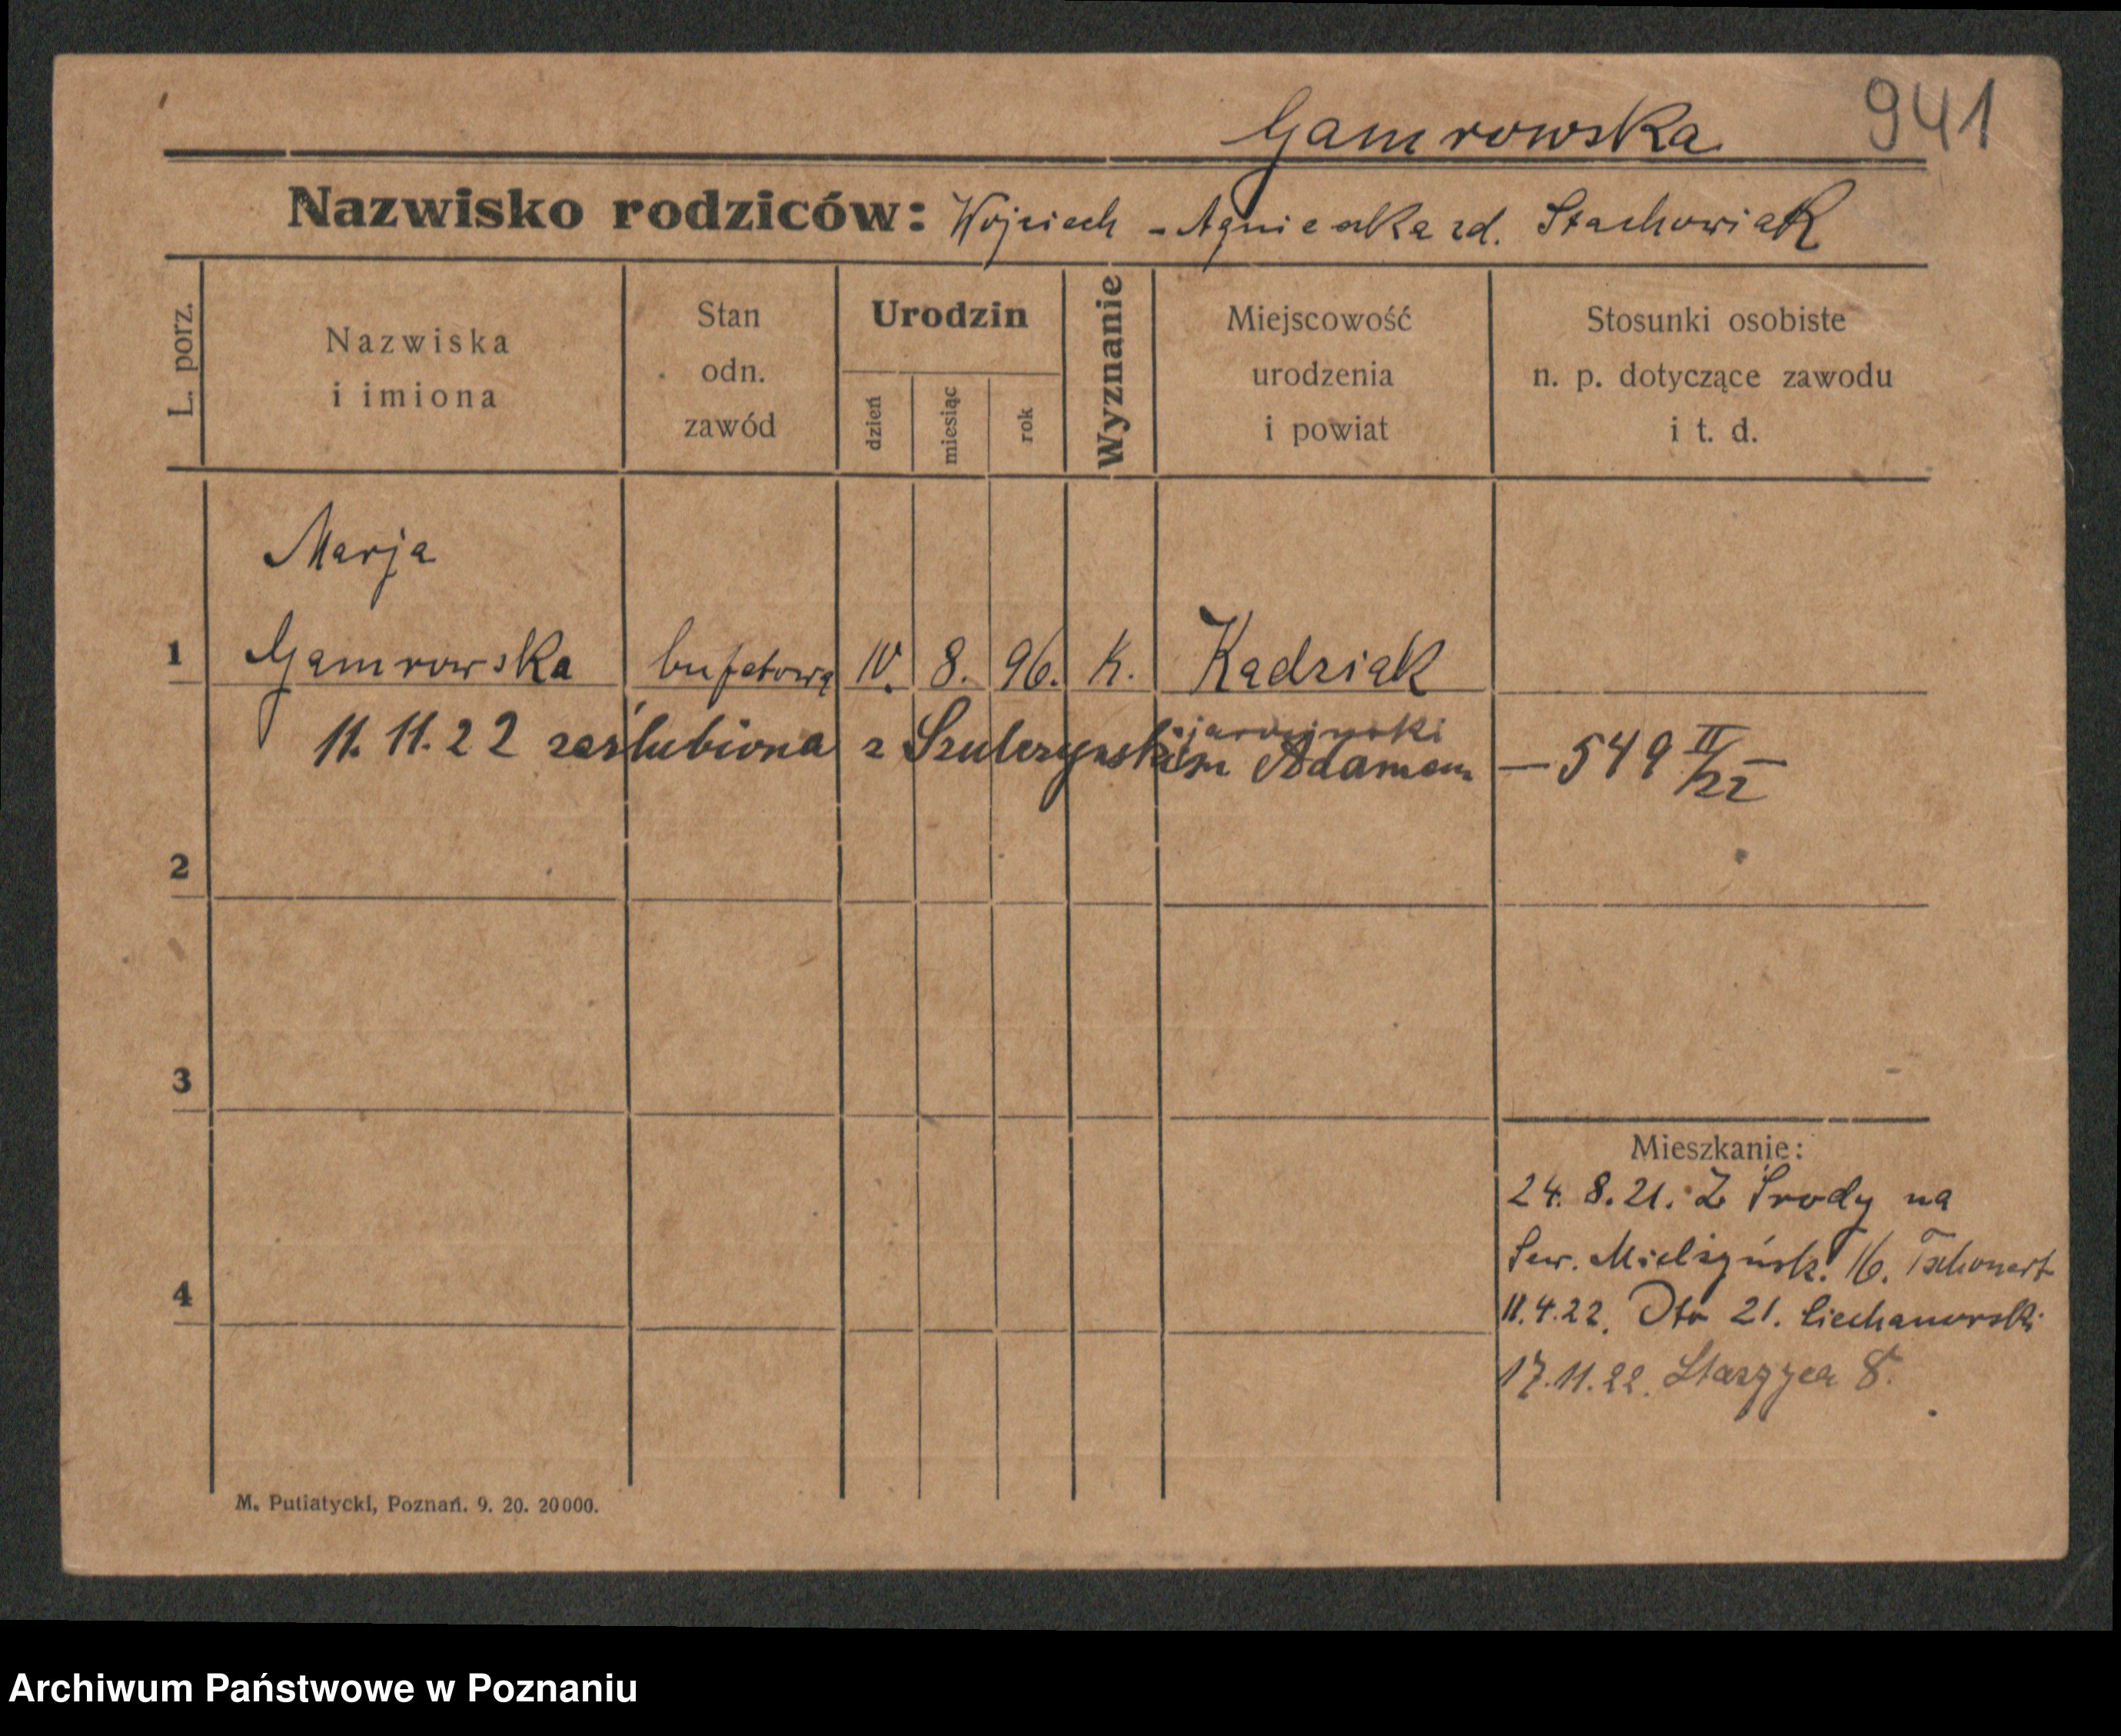 941
Gamrowska
Nazwisko rodziców: Wojciech - Agnieszka zd. Stachowiak
L. porz.
Nazwiska
i imiona
Stan
odn.
zawód
Urodzin
dzień
miesiąc
rok
Wyznanie
Miejscowość
urodzenia
i powiat
Stosunki osobiste
n. p. dotyczące zawodu
i t. d.
Marja
1 Gamrowska bufetowa 10. 8. 96. K. Kadziak
jarocinski
11.11.22 zaślubiona z Szulczynskim Adamem — 549 II/22
2
3
4
Mieszkanie:
24. 8. 21. Z Środy na
Sew. Mielżyńsk. 16. Tschonert
11.4.22. Dto 21. Ciechanowski
17.11.22. 8.
M. Putiatycki, Poznań. 9. 20. 20000.
Archiwum Państwowe w Poznaniu